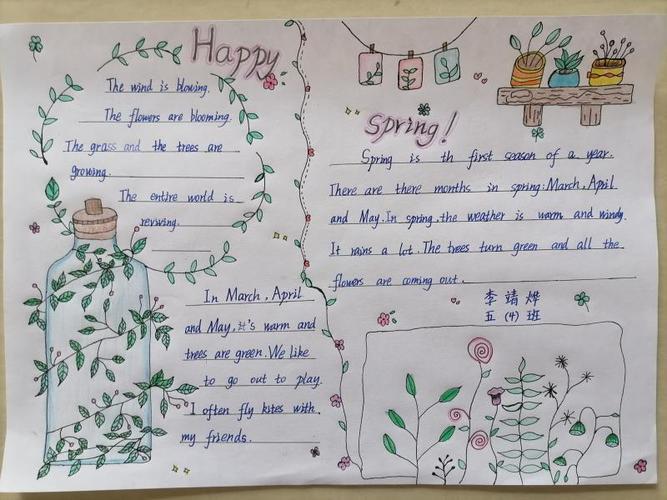 Happy
The wind is blowing.
The flowers are blooming.
The grass and the trees are
growing.
The entire world is
reviving.
In March, April
and May, it's warm and
trees are green. We like
to go out to play.
I often fly kites with
my friends.
Spring!
Spring is th first season of a year.
There are there months in spring: March, April
and May. In spring, the weather is warm and windy.
It rains a lot. The trees turn green and all the
flowers are coming out.
李靖烨
五(4)班